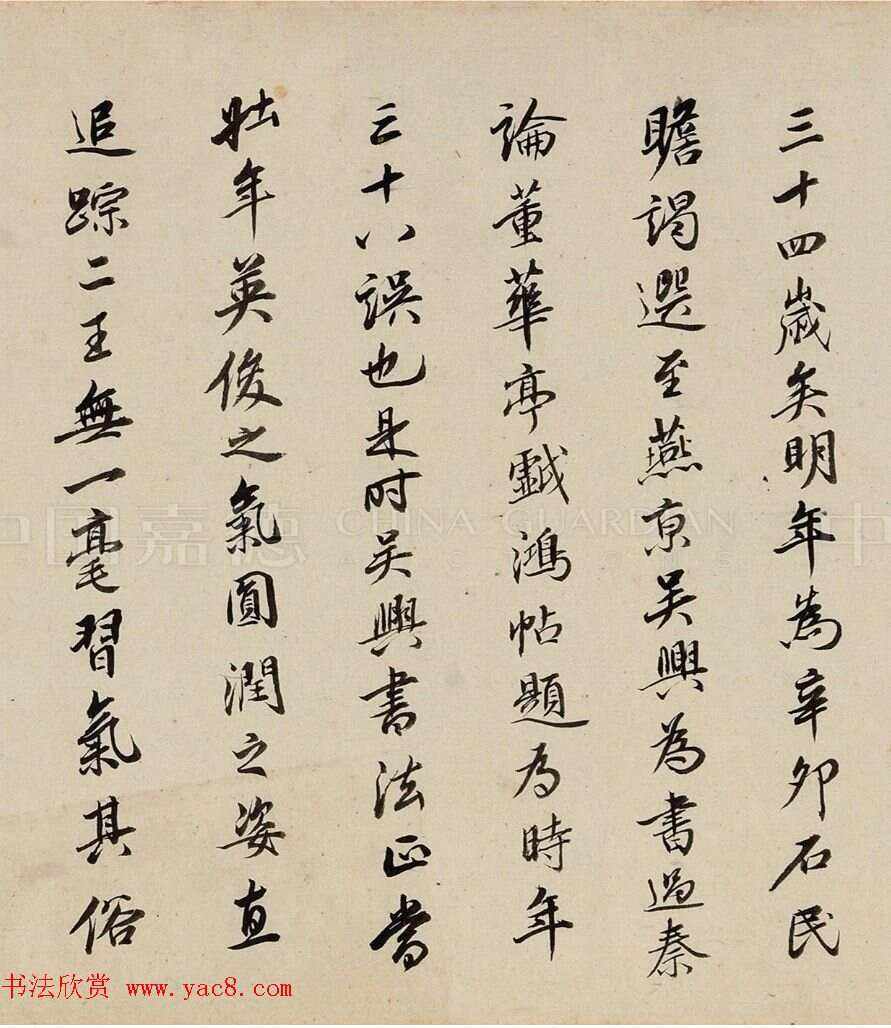 三十四歲矣明年為辛卯石民
瞻謁選至燕京吳興為書過秦
論董華亭戲鴻帖題為時年
三十八誤也是时吳興書法正當
壯年英俊之氣圓潤之姿直
追踪二王無一毫習氣其俗
中国嘉德 CHINA GUARDIAN 中
书法欣赏 www.yac8.com